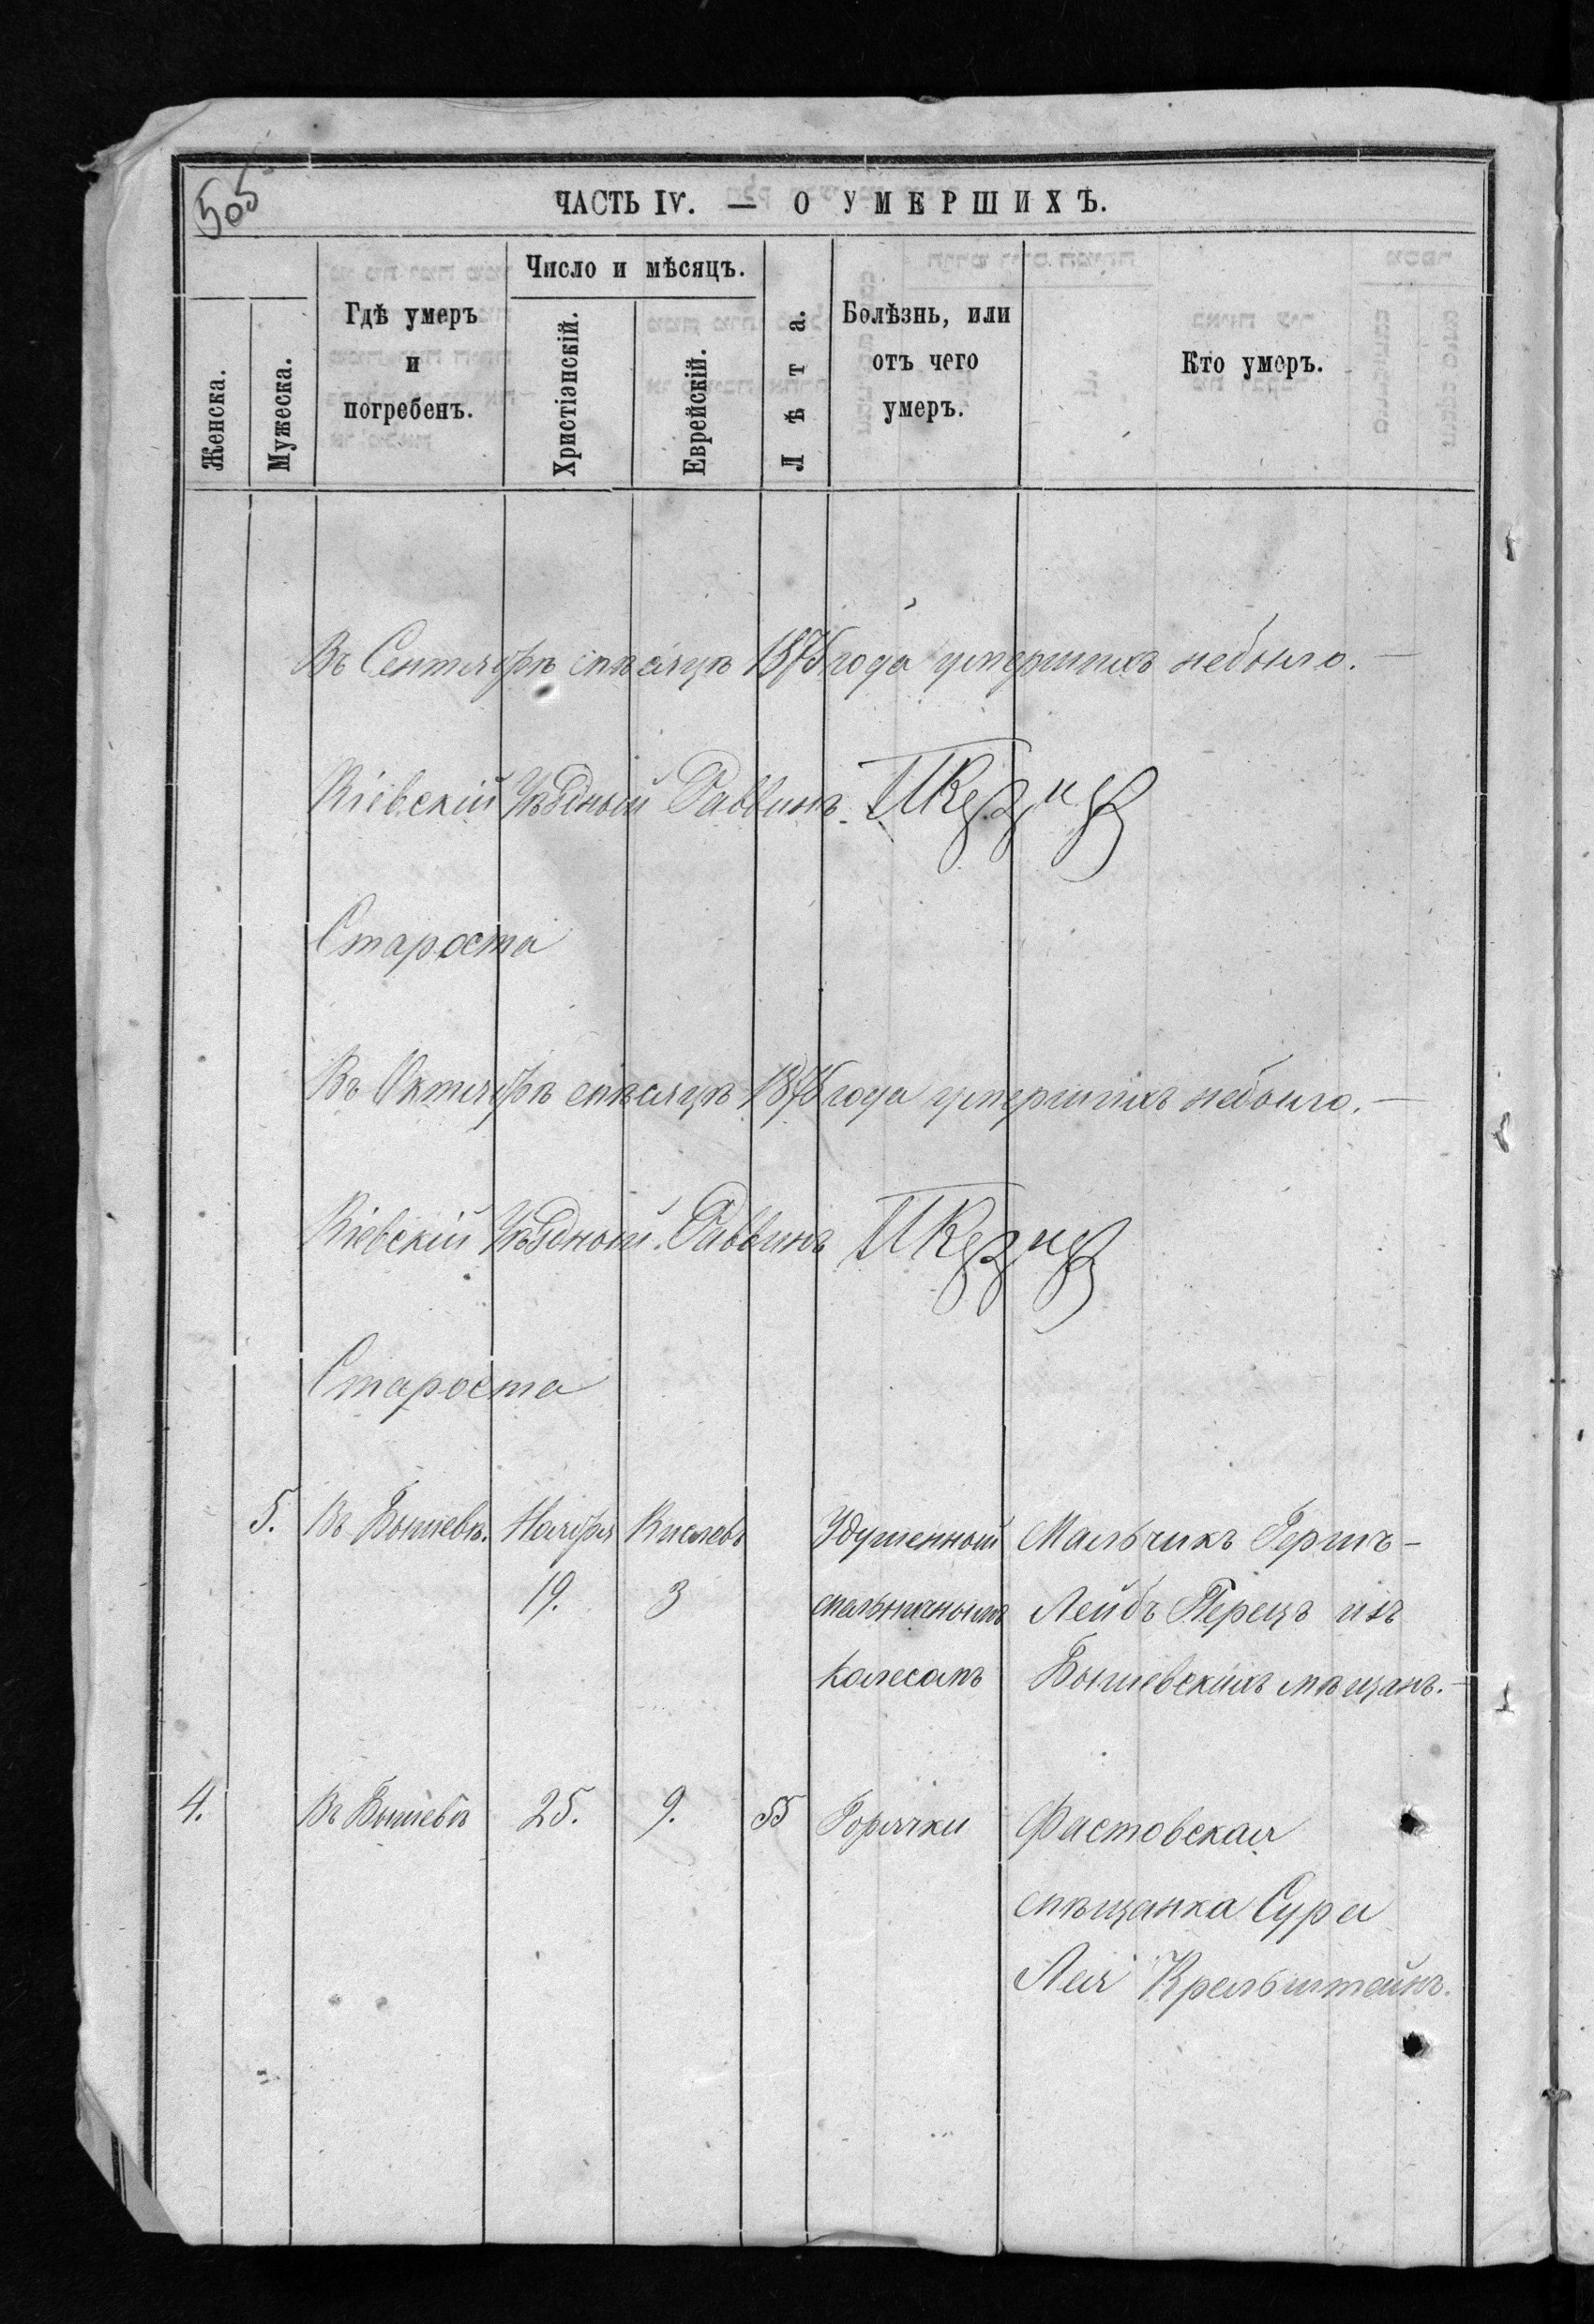 505
ЧАСТЬ IV. — О УМЕРШИХЪ.
Женска.
Мужеска.
Гдѣ умеръ
и
погребенъ.
Число и мѣсяцъ.
Христіанскій.
Еврейскій.
Лѣта.
Болѣзнь, или
отъ чего
умеръ.
Кто умеръ.
Въ Сентябрѣ мѣсяцѣ 1875 года умершихъ небыло. —
Кіевскій Уѣздный Раввинъ.
Староста
Въ Октябрѣ мѣсяцѣ 1875 года умершихъ небыло. —
Кіевскій Уѣздный Раввинъ
Староста
5. Въ Бышевѣ. Ноября Кислевъ Удушенный Мальчикъ Герш-
19. 3 мельничнымъ Лейбъ Перецъ изъ
колесомъ Бышевскихъ мѣщанъ. —
4. Въ Бышевѣ 25. 9. 55 Горячки Фастовская
мѣщанка Сура
Лея Крельштейнъ.